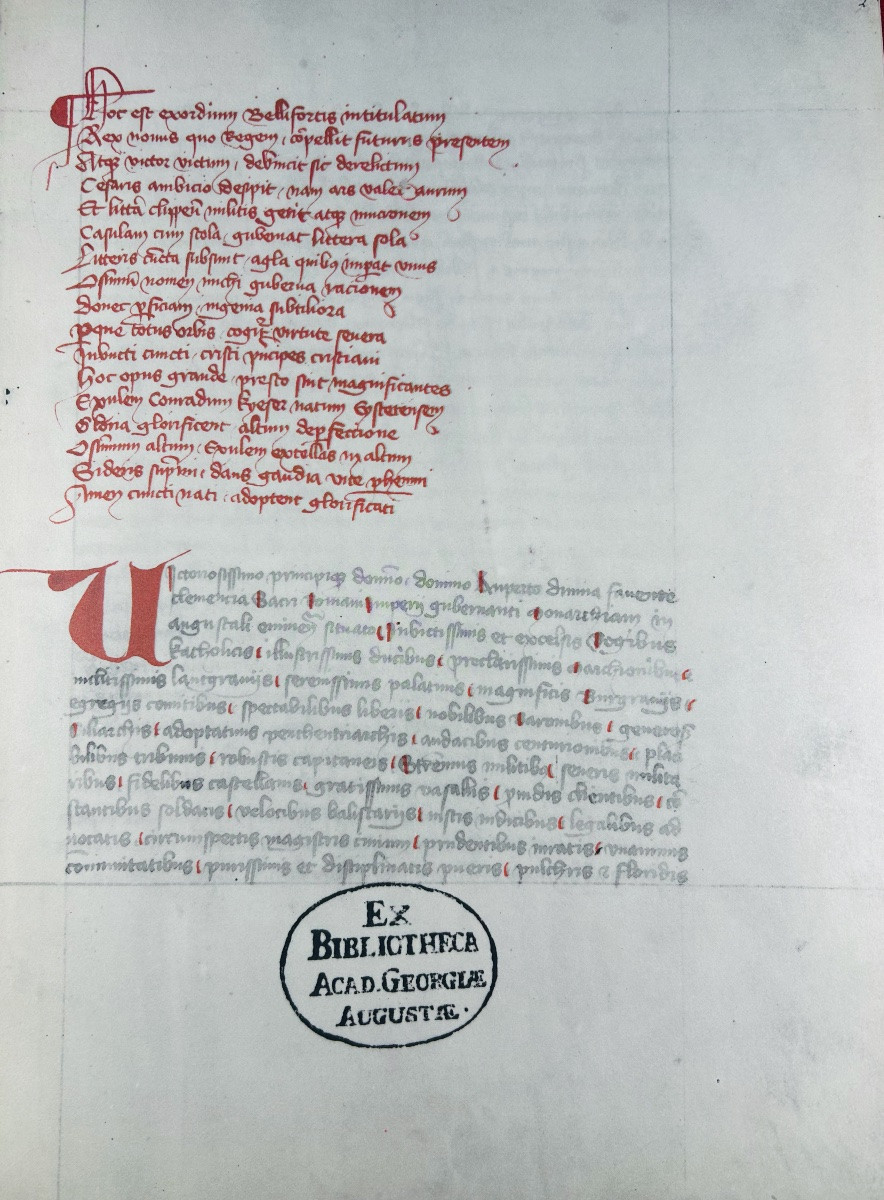 Hoc est exordium Bellifortis intitulatum
Rex nouus quo Regem, cōpellit futurus presentem
Atqȝ victor victum, deuincit sic derelictum
Cesaris ambicio despit, nam ars valet aurum
Et littā clippeū militis gerit atqȝ mucronem
Casulam cum stola, gubernat littera sola
Litteris cūcta subsunt, agla quibȝ imꝑat vnus
Ossimū nomen michi guberna racionem
donec ꝑficiam, ingenia subtiliora
ꝑque totus orbis, cogitꝛ virtute seuera
Inuicti cuncti, cristi pncipes cristiani
Hoc opus grande presto sint magnificantes
Exulem Conradum kyeser natum Eystetensem
Gloria glorificent, altum de ꝑfeccione
Ossimum altum, Exulem extollas in altum
Sideris supmi, dans gaudia vite ꝑhenni
Amen cuncti nati, adoptent glorificati
Uictoriosissimo principiqȝ domīo, domino Ruperto diuina fauente
clemencia Sacri Romani Imperij gubernanti Monarchiam in
augustali situato Inuictissimis et excelsis Regibus
katholicis illustrissimis ducibus, preclarissimis Marchionibus
inclitissimis lantgrauijs, serenissimis palatinis, magnificis Burgrauijs
egregijs comitibus, spectabilibus liberis, nobilibus Baronibus, generosis
Ciliarchis, adoptatiuis penthentriarchis, audacibus centurionibus, plac
bilibus tribunis, robustis capitaneis, Strenuis militibȝ, seueris milita
ribus, fidelibus castellanis, gratissimis vasallis, pruidis clientibus, cō
stantibus soldatis, velocibus balistarijs, iustis iudicibus, legalibus ad
uocatis, circumspectis magistris ciuium, prudentibus iuratis, vnanimis
cōmunitatibus, purissimis et disciplinatis pueris, pulchris ⁊ floridis
EX
BIBLIOTHECA
ACAD. GEORGIÆ
AUGUSTÆ.